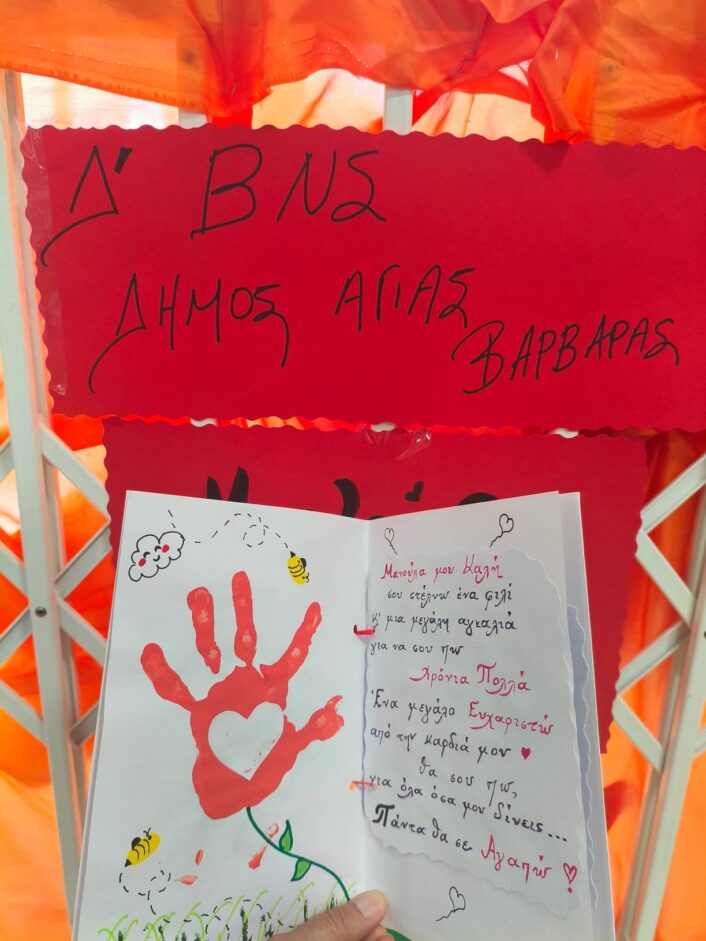 Δ' ΒΝΣ
ΔΗΜΟΣ ΑΓΙΑΣ
ΒΑΡΒΑΡΑΣ
Μανούλα μου καλή
σου στέλνω ένα φιλί
κ' μια μεγάλη αγκαλιά
για να σου πω
Χρόνια Πολλά
Ένα μεγάλο Ευχαριστώ
από την καρδιά μου
θα σου πω,
για όλα όσα μου δίνεις...
Πάντα θα σε Αγαπώ